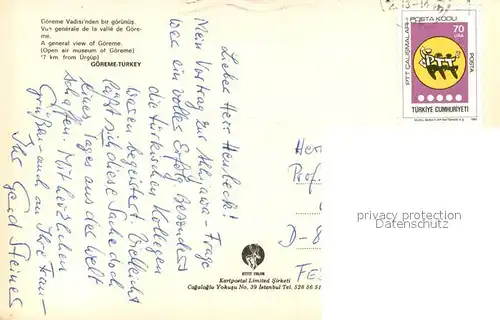 Göreme Vadisi'nden bir görünüş.
Vue générale de la vallé de Göre-
me.
A general view of Göreme.
(Open air museum of Göreme)
7 km. from Ürgüp)
GÖREME-TURKEY
Lieber Herr
Mein Vortrag zur Ahhijawa-Frage
war ein volles Erfolg. Besonders
die türkischen Kollegen
waren begeistert. Vielleicht
läßt sich diese Sache doch
eines Tages aus der Welt
schaffen. Mit herzlichen
Grüßen - auch an Ihre Frau -
Ihr Gerd Steiner
Herr
Prof.
D-8
PTT ÇALIŞMALARI POSTA KODU
70
LİRA
PTT
POSTA
TÜRKİYE CUMHURİYETİ
privacy protection
Datenschutz
HITIT COLOR
Kartpostal Limited Şirketi
Cağaloğlu Yokuşu No. 39 İstanbul Tel. 526 56 51